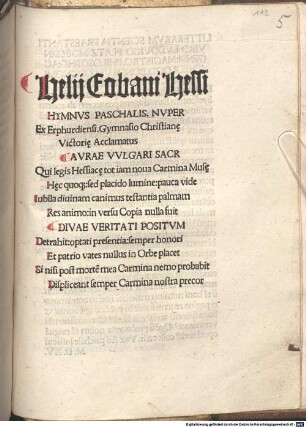 112
5
Helij Eobani Hessi
HYMNVS PASCHALIS. NVPER
Ex Erphurdiensi. Gymnasio Christianę
Victorię Acclamatus
¶ AVRAE VVLGARI SACR
Qui legis Hessiacę tot iam noua Carmina Musę
Hęc quoq; sed placido lumine: pauca vide
Iubila diuinam canimus testantia palmam
Res animo: in versu Copia nulla fuit
¶ DIVAE VERITATI POSITVM
Detrahit: optati presentia: semper honori
Et patrio vates nullus in Orbe placet
Et nisi post mortē mea Carmina nemo probabit
Displiceant semper Carmina nostra precor